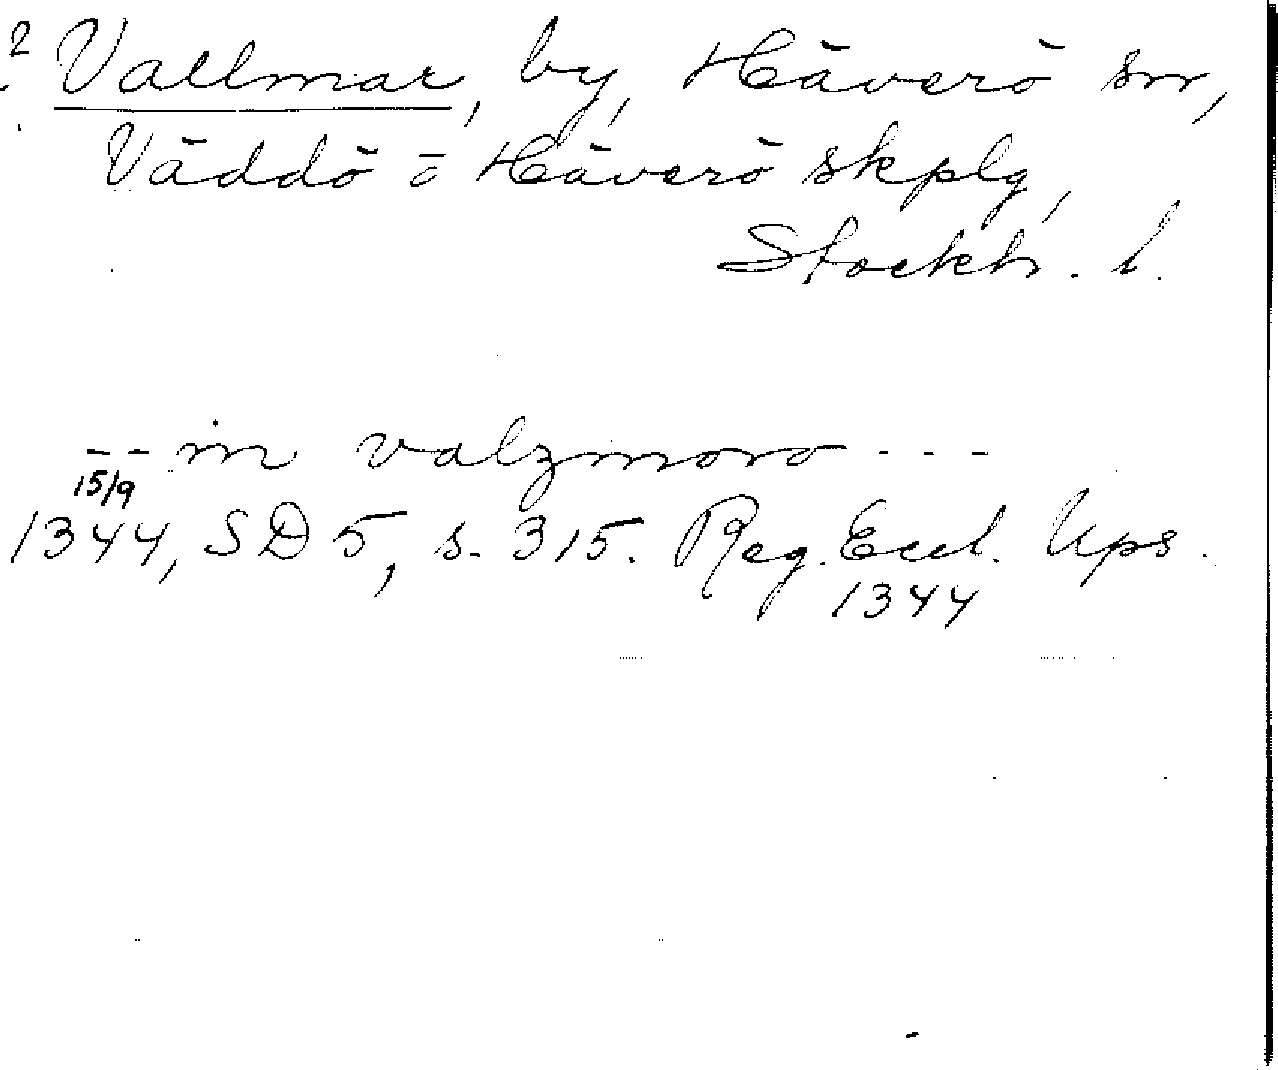 ? Vallmar, by, Häverö sn,
Väddö o Häverö skplg,
Stockh. l.
-- in valzmoro ---
15/9
1344, SD 5, s. 315. Reg. Eccl. Ups.
1344